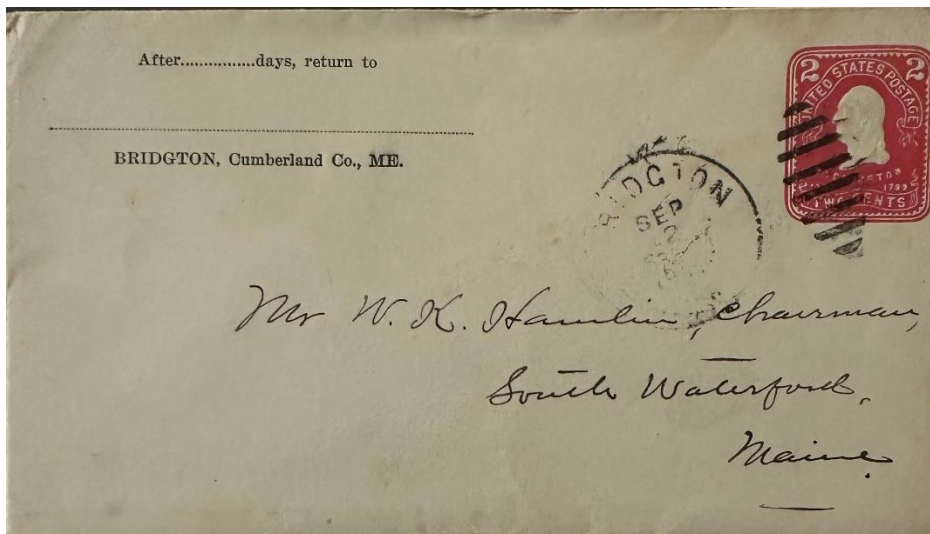 After................days, return to
BRIDGTON, Cumberland Co., ME.
2 UNITED STATES POSTAGE 2
1799
TWO CENTS
RIDGTON
SEP
Mr W. K. Hamlin, Chairman,
South Waterford,
Maine.